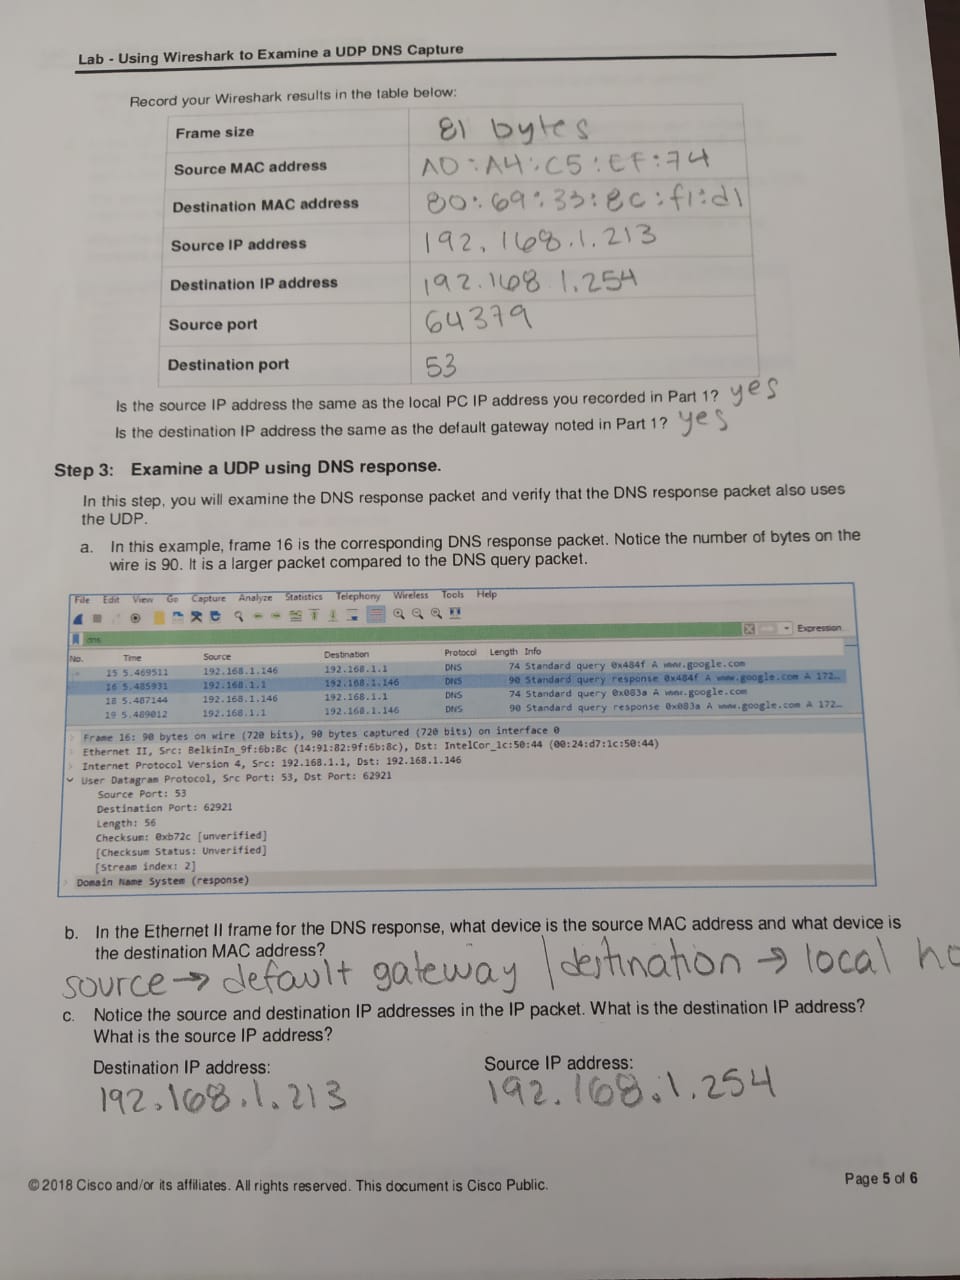 Lab - Using Wireshark to Examine a UDP DNS Capture
Record your Wireshark results in the table below:
Frame size 81 bytes
Source MAC address A0:A4:C5:EF:74
Destination MAC address 80:69:33:8c:f1:d1
Source IP address 192.168.1.213
Destination IP address 192.168.1.254
Source port 64379
Destination port 53
Is the source IP address the same as the local PC IP address you recorded in Part 1? yes
Is the destination IP address the same as the default gateway noted in Part 1? yes
Step 3: Examine a UDP using DNS response.
In this step, you will examine the DNS response packet and verify that the DNS response packet also uses
the UDP.
a. In this example, frame 16 is the corresponding DNS response packet. Notice the number of bytes on the
wire is 90. It is a larger packet compared to the DNS query packet.
File Edit View Go Capture Analyze Statistics Telephony Wireless Tools Help
dns Expression
No. Time Source Destination Protocol Length Info
15 5.469511 192.168.1.146 192.168.1.1 DNS 74 Standard query 0x484f A www.google.com
16 5.485931 192.168.1.1 192.168.1.146 DNS 90 Standard query response 0x484f A www.google.com A 172…
18 5.487144 192.168.1.146 192.168.1.1 DNS 74 Standard query 0x083a A www.google.com
19 5.489012 192.168.1.1 192.168.1.146 DNS 90 Standard query response 0x083a A www.google.com A 172…
Frame 16: 90 bytes on wire (720 bits), 90 bytes captured (720 bits) on interface 0
Ethernet II, Src: BelkinIn_9f:6b:8c (14:91:82:9f:6b:8c), Dst: IntelCor_1c:50:44 (00:24:d7:1c:50:44)
Internet Protocol Version 4, Src: 192.168.1.1, Dst: 192.168.1.146
User Datagram Protocol, Src Port: 53, Dst Port: 62921
Source Port: 53
Destination Port: 62921
Length: 56
Checksum: 0xb72c [unverified]
[Checksum Status: Unverified]
[Stream index: 2]
Domain Name System (response)
b. In the Ethernet II frame for the DNS response, what device is the source MAC address and what device is
the destination MAC address?
source → default gateway | destination → local ho
c. Notice the source and destination IP addresses in the IP packet. What is the destination IP address?
What is the source IP address?
Destination IP address: Source IP address:
192.168.1.213 192.168.1.254
© 2018 Cisco and/or its affiliates. All rights reserved. This document is Cisco Public. Page 5 of 6